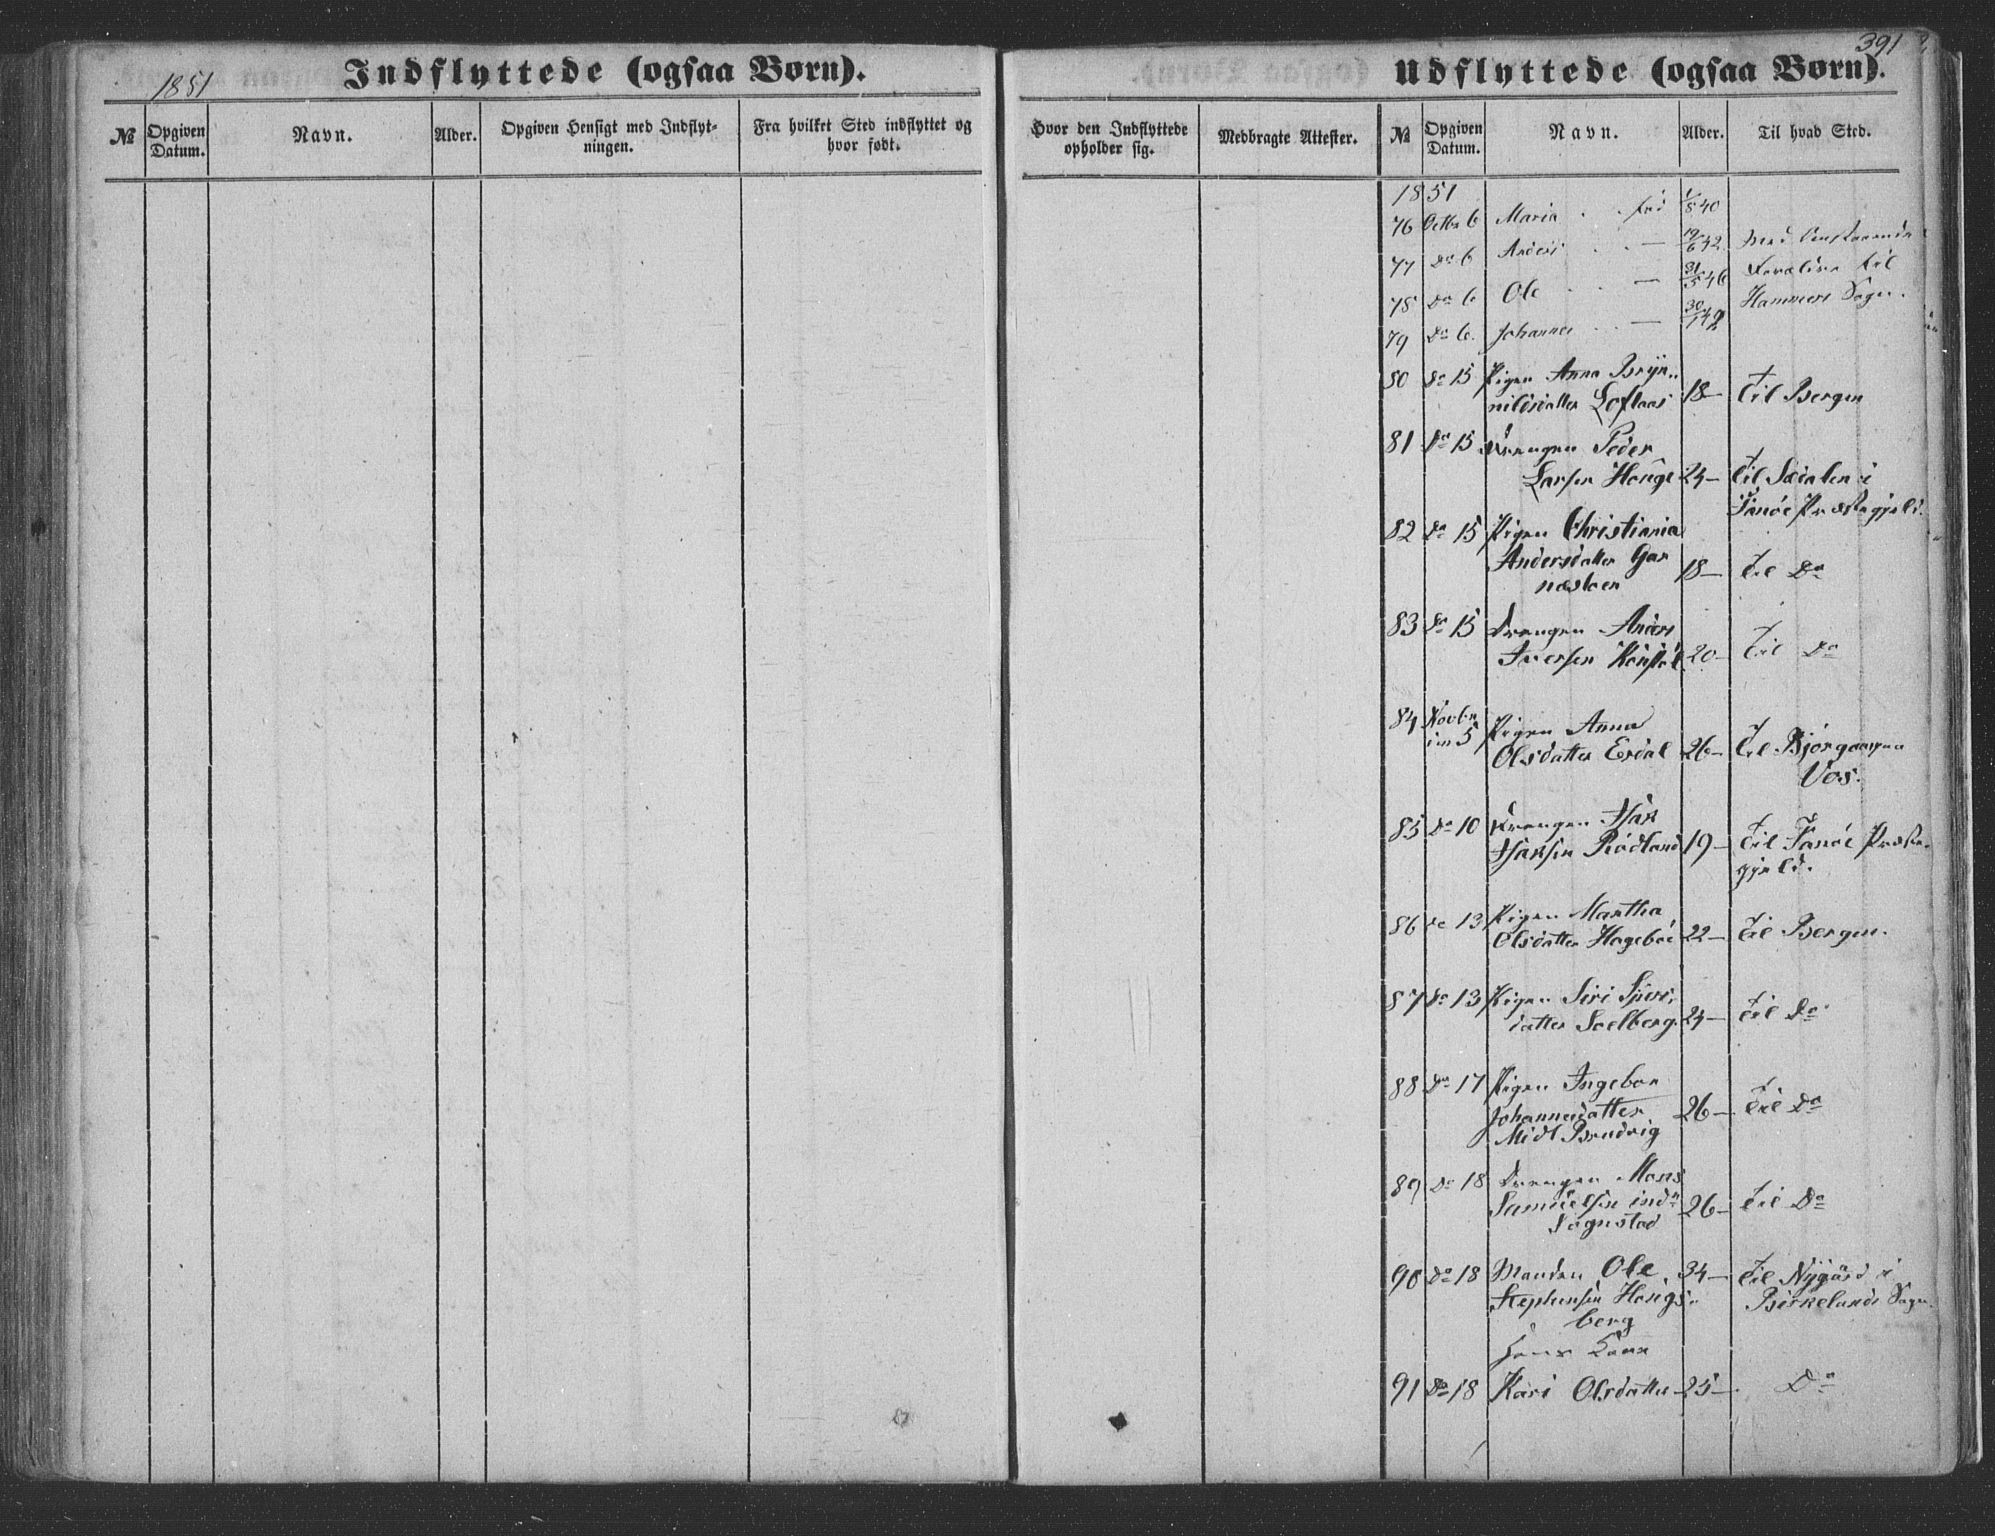 1851
Indflyttede (ogsaa Børn).
№
Opgiven Datum.
Navn.
Alder.
Opgiven Hensigt med Indflyt-
ningen.
Fra hvilket Sted indflyttet og
hvor født.
391
Udflyttede (ogsaa Børn).
Hvor den Indflyttede
opholder sig.
Medbragte Attester.
№
Opgiven Datum.
Navn.
Alder.
Til hvad Sted.
1851
76 Octbr 6 Maria . . fød 1/8 40
77 Do 6 Anders . . — 19/6 42 med
78 Do 6 Ole . . — 31/5 46 Forældre til
79 Do 6. Johannes . . — 30/1 49 Hammers Sogn.
80 Do 15 Pigen Anna Bryn-
nildsdatter Loftaas 18— til Bergen
81 Do 15 Drengen Peder
Larsen Hauge 24— til Sædalen i
Fanøe Præstegjeld.
82 Do 15 Pigen Christiania
Andersdatter Gar
næstøen 18— til Do
83 Do 15 Drengen Anders
Iversen 20— til Do
84 Novbr
5 Pigen Anna
Olsdatter Erdal 26— til
Vos.
85 Do 10 Drengen Isak
Isaksen Rødland 19— til Fanøe Præste-
gjeld.
86 Do 13 Pigen Martha
Olsdatter Hagebøe 22— til Bergen.
87 Do 13 Pigen Siri Sjurs-
datter Soelberg 24— til Do
88 Do 17 Pigen Ingebor
Johannesdatter 26— til Do
Midt Brudvig
89 Do 18 Drengen Mons
Samuelsen ind 26— til Do
Sognstad
90 Do 18 Manden Ole 34— til Nygård i
Stephensen Haugs- Birkelands Sogn.
berg
hans Kone
91 Do 18 Kari Olsdatter 25— Do